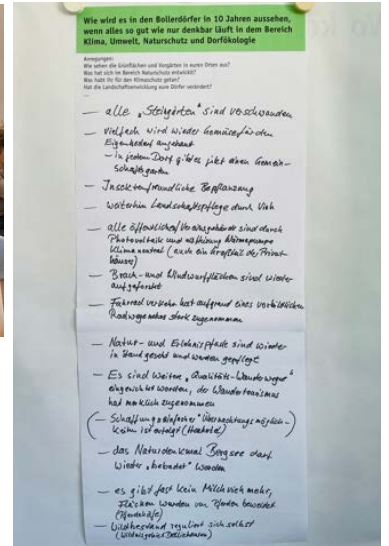 Wie wird es in den Bollerdörfer in 10 Jahren aussehen,
wenn alles so gut wie nur denkbar läuft in dem Bereich
Klima, Umwelt, Naturschutz und Dorfökologie
Anregungen:
Wie sehen die Grünflächen und Vorgärten in euren Orten aus?
Was hat sich im Bereich Naturschutz entwickelt?
Was habt ihr für den Klimaschutz getan?
Hat die Landschaftsentwicklung eure Dörfer verändert?
...
— alle „Steingärten" sind verschwunden
— vielfach wird wieder Gemüse für den
Eigenbedarf angebaut
- in jedem Dorf gibt es jetzt einen Gemein-
schaftsgarten
— Insektenfreundliche Bepflanzung
— weiterhin Landschaftspflege durch Vieh
— alle öffentlichen/Vereinsgebäude sind durch
Photovoltaik und Wärmepumpe
Klimaneutral (auch ein Großteil der Privat-
häuser)
— Brach- und Windwurfflächen sind wieder
aufgeforstet
— Fahrradverkehr hat aufgrund eines vorbildlichen
Radwegenetzes stark zugenommen
— Natur- und Erlebnispfade sind wieder
in Stand gesetzt und werden gepflegt
— Es sind weitere „Qualitäts-Wanderwege"
eingerichtet worden, der Wandertourismus
hat merklich zugenommen
(— Schaffung einfacher Übernachtungsmöglich-
keiten ist erfolgt (Heuhotel)
— das Naturdenkmal Bergsee darf
wieder „bebadet" werden
— es gibt fast kein Milchvieh mehr,
Flächen werden von Pferden beweidet
(Pferdehöfe)
— Wildbestand reguliert sich selbst